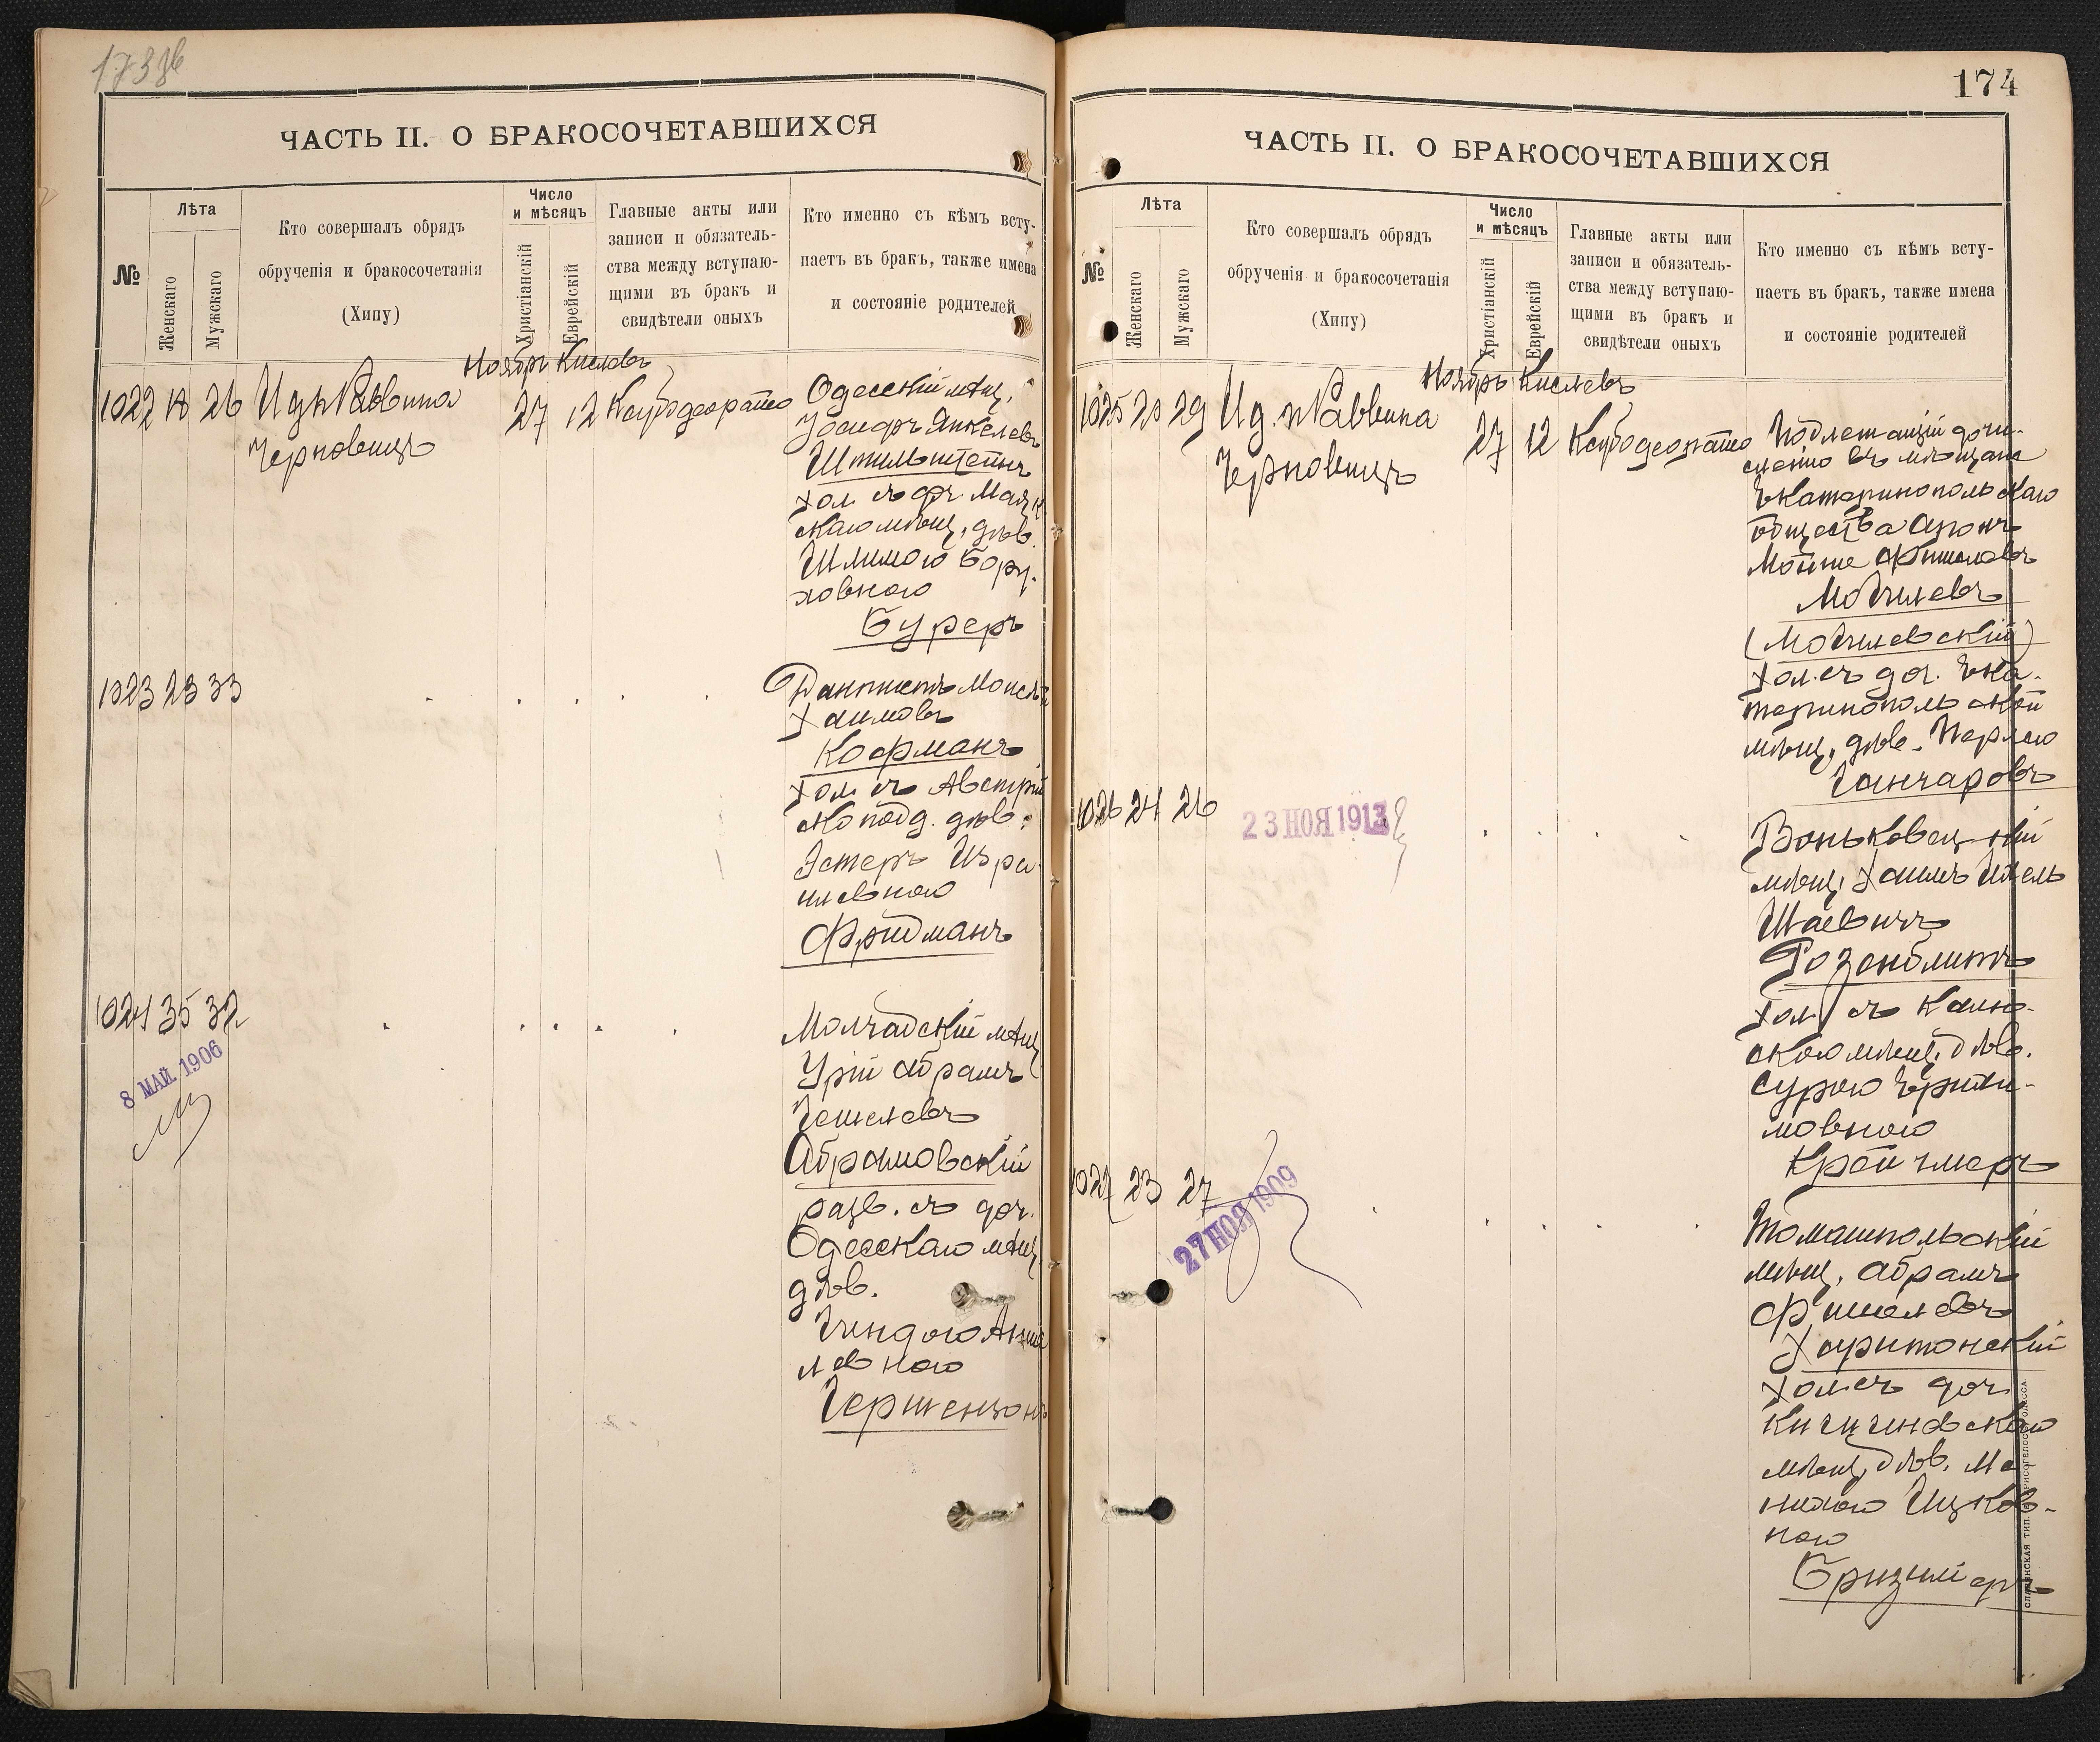 173 об
ЧАСТЬ II. О БРАКОСОЧЕТАВШИХСЯ
№
Лѣта
Женскаго
Мужскаго
Кто совершалъ обрядъ
обрученія и бракосочетанія
(Хипу)
Число
и мѣсяцъ
Христіанскій
Еврейскій
Главные акты или
записи и обязатель-
ства между вступаю-
щими въ бракъ и
свидѣтели оныхъ
Кто именно съ кѣмъ всту-
паетъ въ бракъ, также имена
и состояніе родителей
Ноябрь Кислевъ
1022 18 26
Черновицъ
27 12
Одесскій мѣщ.
Іосифъ Янкелевъ
Штильштейнъ
хол. съ
скаго мѣщ. дѣв.
Бору-
ховною
Буреръ
1023 23 33
Дантистъ
Хаимовъ
Кофманъ
хол. съ Австрій
ско подд. дѣв.
Эстеръ Изра-
илевною
Фридманъ
1024 35 32
8 МАЙ 1906
Молчадскій мѣщ.
Урій Абрамъ
Гешелевъ
Абрамовскій
разв. съ доч.
Одесскаго мѣщ.
дѣв.
Гендею
левною
Гершензонъ
174
ЧАСТЬ II. О БРАКОСОЧЕТАВШИХСЯ
№
Лѣта
Женскаго
Мужскаго
Кто совершалъ обрядъ
обрученія и бракосочетанія
(Хипу)
Число
и мѣсяцъ
Христіанскій
Еврейскій
Главные акты или
записи и обязатель-
ства между вступаю-
щими въ бракъ и
свидѣтели оныхъ
Кто именно съ кѣмъ всту-
паетъ въ бракъ, также имена
и состояніе родителей
Ноябрь Кислевъ
1025 20 29 Ид. п Раввина
Черновицъ
27 12
Подлежащій дочи-
сленію въ мѣщане
Екатеринопольскаго
общества Аронъ
Мойше Фишелевъ
Могилевъ
(Могилевскій)
хол. съ доч. Ека-
теринопольской
мѣщ. дѣв. Перлею
Гончаровъ
1026 24 26
23 НОЯ 1913
Воньковецкій
мѣщ. Хаимъ
Шаевичъ
Розенблитъ
хол. съ Калю-
скою мѣщ. дѣв.
Сурою
мовною
Крейчмеръ
1027 23 27
27 НОЯ 1909
Томашпольскій
мѣщ. Абрамъ
Фишелевъ
Харитонскій
хол. съ доч.
Кишиневскаго
мѣщ. дѣв. Ма-
нихою Ицков-
ною
СЛАВЯНСКАЯ ТИП. ОДЕССА